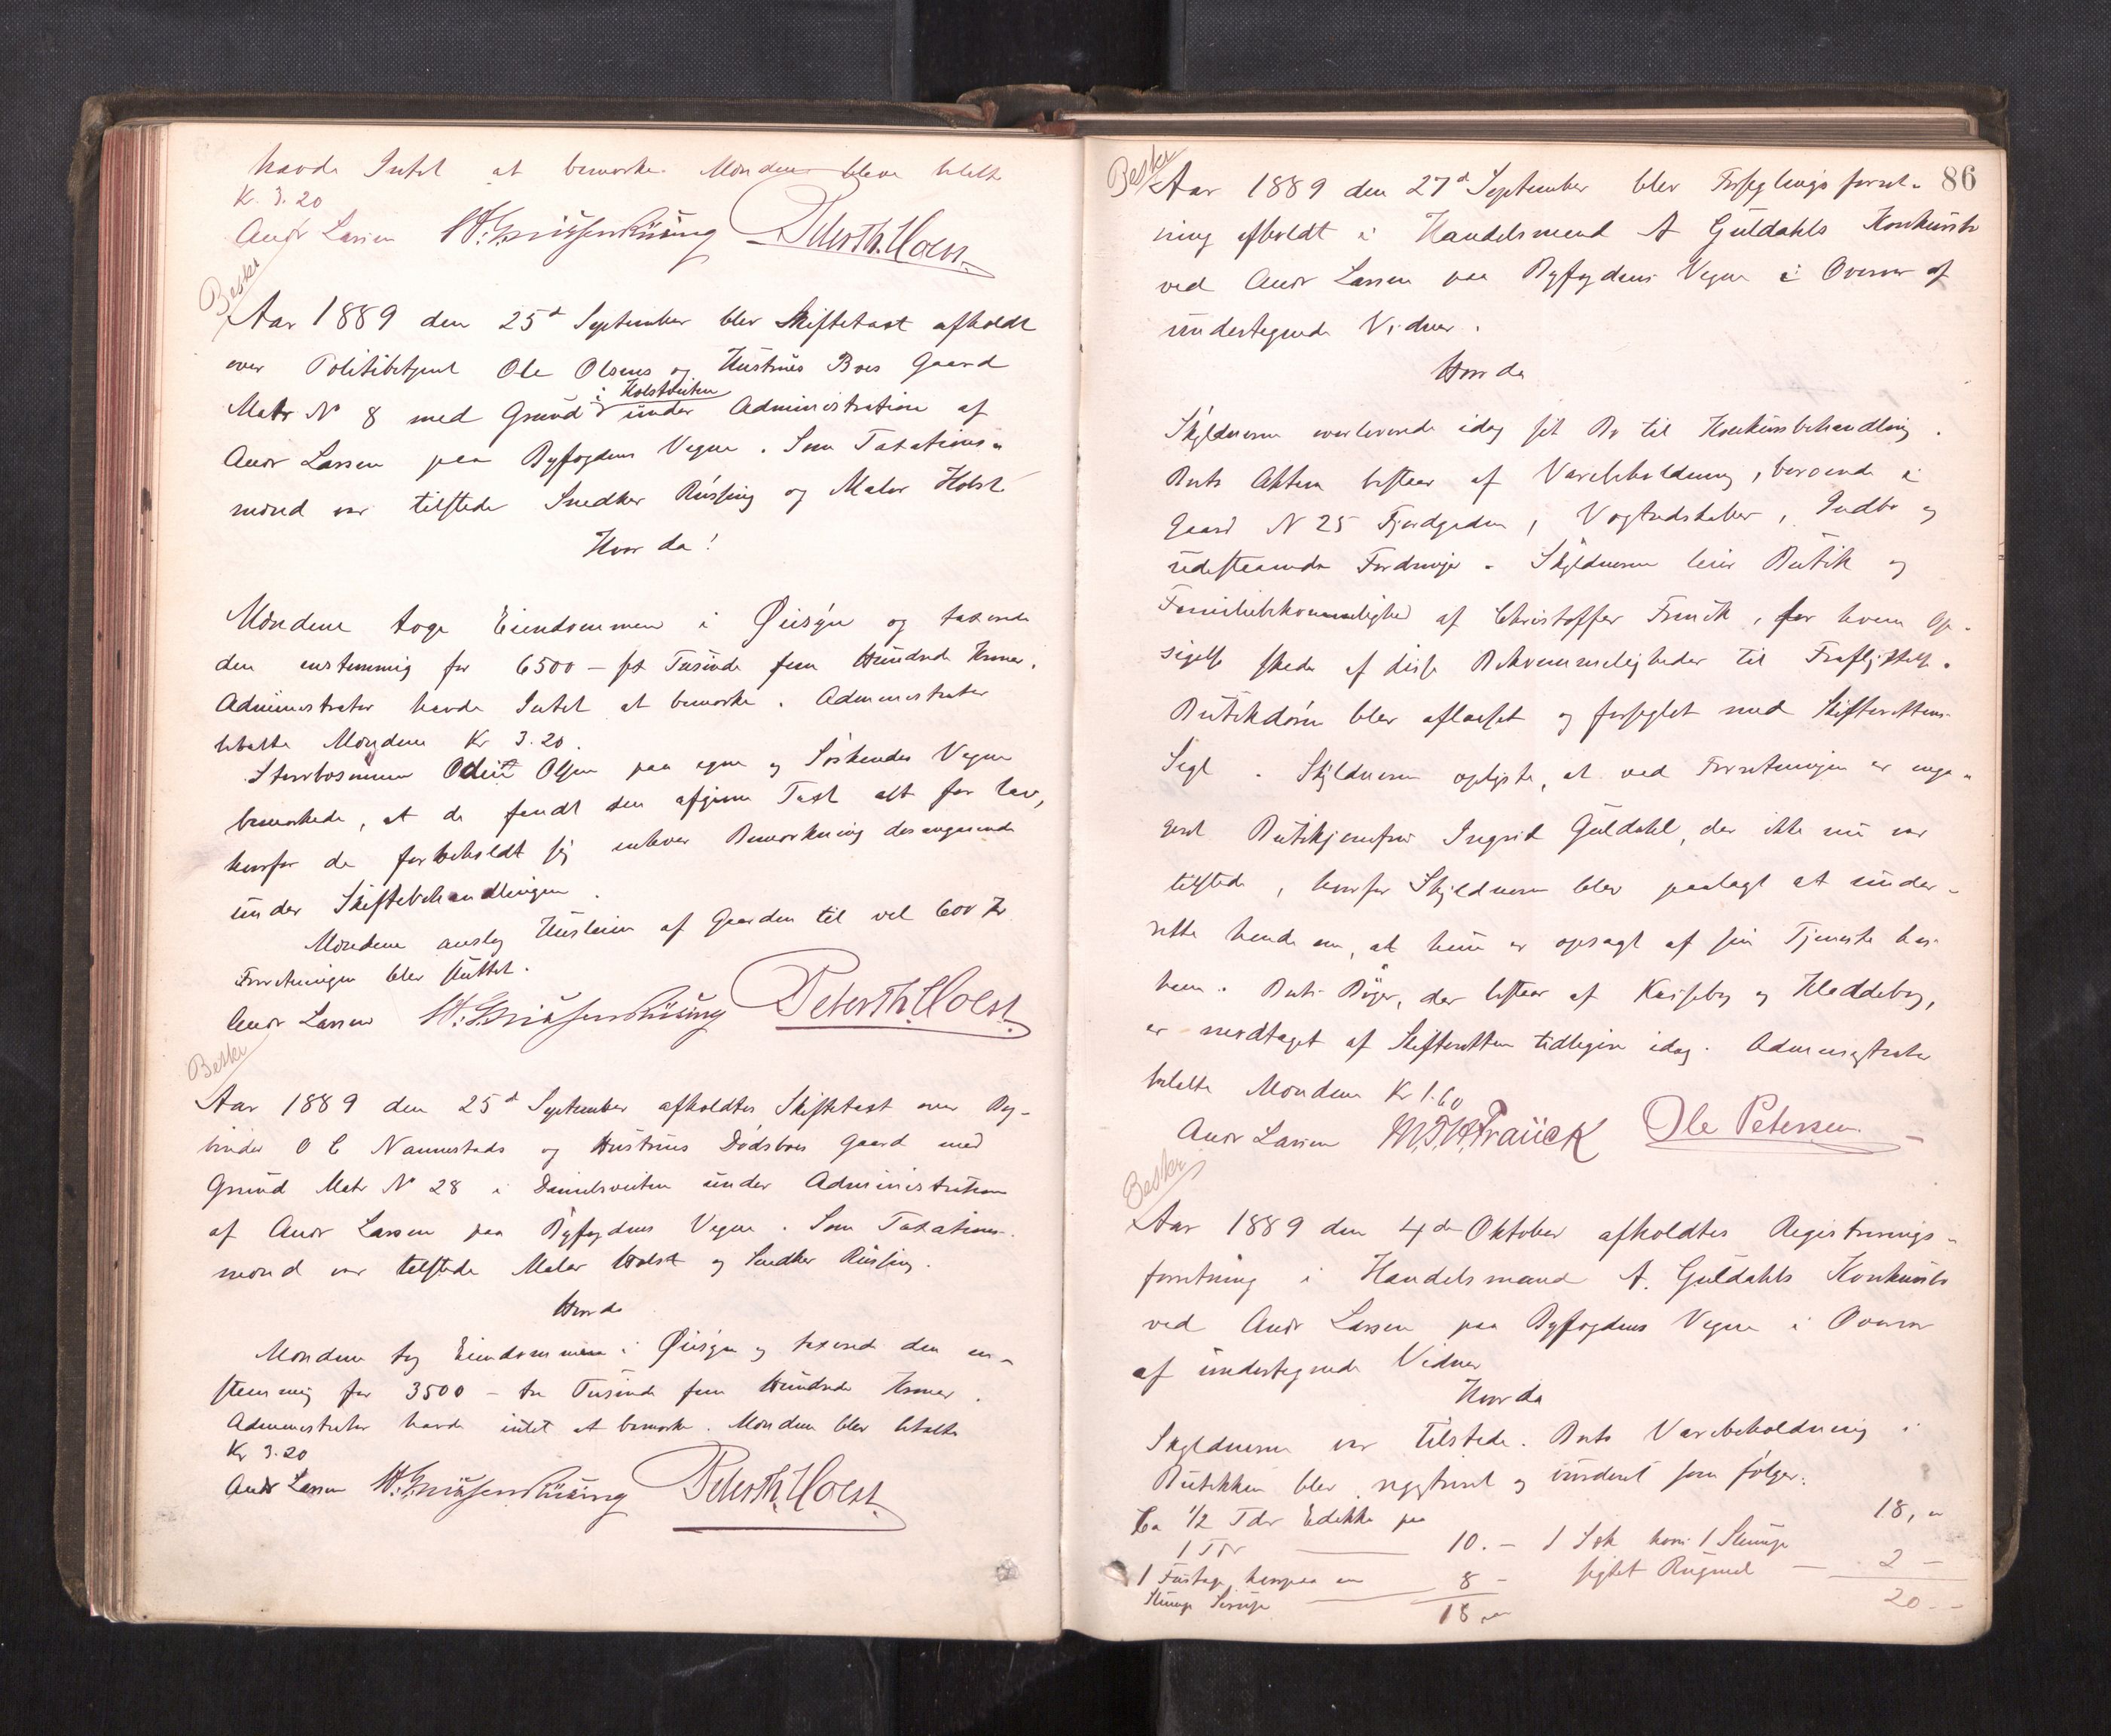 havde Intet at bemærke. Mændene bleve betalte
Kr. 3.20
Andr Larsen Peter Th. Holst.
Beskr
Aar 1889 den 25de September blev Skiftetaxt afholdt
over Politibetjent Ole Olsens og Hustrues Boes Gaard
i Holstveiten
Matr No 8 med Grund under Administration af
Andr Larsen paa Byfogdens Vegne. Som Taxations-
mænd var tilstede Snedker Rüssing og Maler Holst
Hvor da!
Mændene toge Eiendommen i Øiesyn og taxerede
den enstemmig for 6500 – sex Tusinde fem Hundrede Kroner.
Administrator havde Intet at bemærke. Administrator
betalte Mændene Kr 3.20.
Stervbosønnen Odin Olsen paa egne og Søskendes Vegne
bemærkede, at de fandt den afgivne Taxt alt for lav,
hvorfor de forbeholdt sig enhver Bemærkning desangaaende
under Skiftebehandlingen.
Mændene anslog Husleien af Gaarden til vel 600 Kr
Forretningen blev sluttet.
Andr Larsen Peter Th. Holst.
Beskr
Aar 1889 den 25de September afholdtes Skiftetaxt over Bog-
binder O C Nannestads og Hustrues Dødsboes Gaard med
Grund Matr No 28 i Danielsveiten under Administration
af Andr Larsen paa Byfogdens Vegne. Som Taxations-
mænd var tilstede Maler Holst og Snedker Rüssing.
Hvor da
Mændene tog Eiendommen i Øiesyn og taxerede den en-
stemmig for 3500 – tre Tusinde fem Hundrede Kroner.
Administrator havde intet at bemærke. Mændene blev betalte
Kr 3.20
Andr Larsen Peter Th. Holst.
86
Beskr
Aar 1889 den 27de September blev Forseglingsforret-
ning afholdt i Handelsmand A Guldahls Konkursbo
ved Andr Larsen paa Byfogdens Vegne i Overvær af
undertegnede Vidner.
Hvor da
Skyldneren overleverede idag sit Bo til Konkursbehandling.
Boets Aktiva bestaar af Varebeholdning, beroende i
Gaard N 25 Fjordgaden, Vognredskaber, Indbo og
udestaaende Fordringer. Skyldneren leier Butik og
Familiebekvemmelighed af Christoffer Frauck, for hvem Op-
sigelse skede af disse Bekvemmeligheder til Fraflyttelse.
Butikdøren blev aflaaset og forseglet med Skifterettens
Segl. Skyldneren oplyste, at ved Forretningen er enga-
geret Butikjomfru Ingrid Guldahl, der ikke nu var
tilstede, hvorfor Skyldneren blev paalagt at under-
rette hende om, at hun er opsagt af sin Tjeneste hos
ham. Boets Bøger, der bestaar af Kassebog og Kladdebog,
er modtaget af Skifteretten tidligere idag. Administrator
betalte Mændene Kr 1.60
Andr Larsen Frauck Ole Petersen.
Beskr
Aar 1889 den 4de Oktober afholdtes Registrerings-
forretning i Handelsmand A. Guldahls Konkursbo
ved Andr Larsen paa Byfogdens Vegne i Overvær
af undertegnede Vidner
Hvor da
Skyldneren var tilstede. Boets Varebeholdning i
Butikken blev registreret og vurderet som følger:
Ca 1/2 Tdr Edikke paa
1 Tdr 10. –
1 Fustage, hvorpaa en 8 –
Slump Sirup 18
18,
1 Sæk hvori 1 Slump
sigtet Rugmel 2 –
20 –